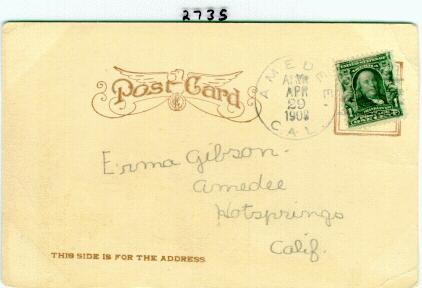 2735
Post Card
AMEDEE
APR
29
CAL.
Erma Gibson.
Amedee
Hotsprings
Calif.
THIS SIDE IS FOR THE ADDRESS